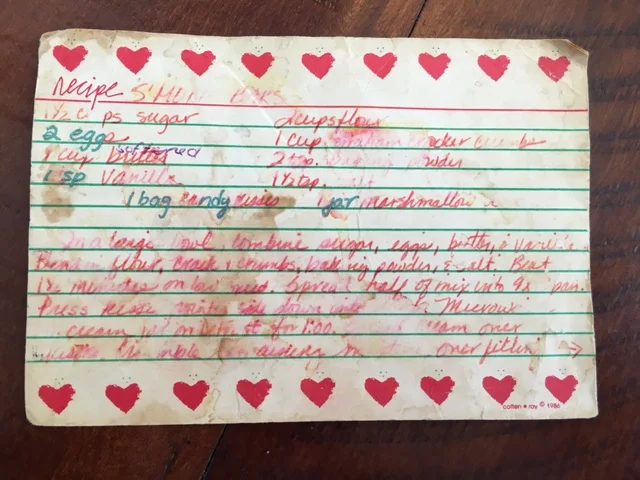 recipe S'More Bars
1½ cups sugar 2 cups flour
2 eggs 1 cup graham cracker crumbs
softened
1 cup butter 2 tsp. baking powder
1 tsp vanilla 1½ tsp. salt
1 bag candy kisses 1 jar marshmallow
In a large bowl, combine sugar, eggs, butter, & vanilla
flour, cracker crumbs, baking powder, & salt. Beat
1½ minutes on low med. Spread half of mix into 9x pan.
Press kisses, pointy side down into
cream on for 1:00. cream over
kisses. Crumble remaining over filling →
cotten • roy © 1986